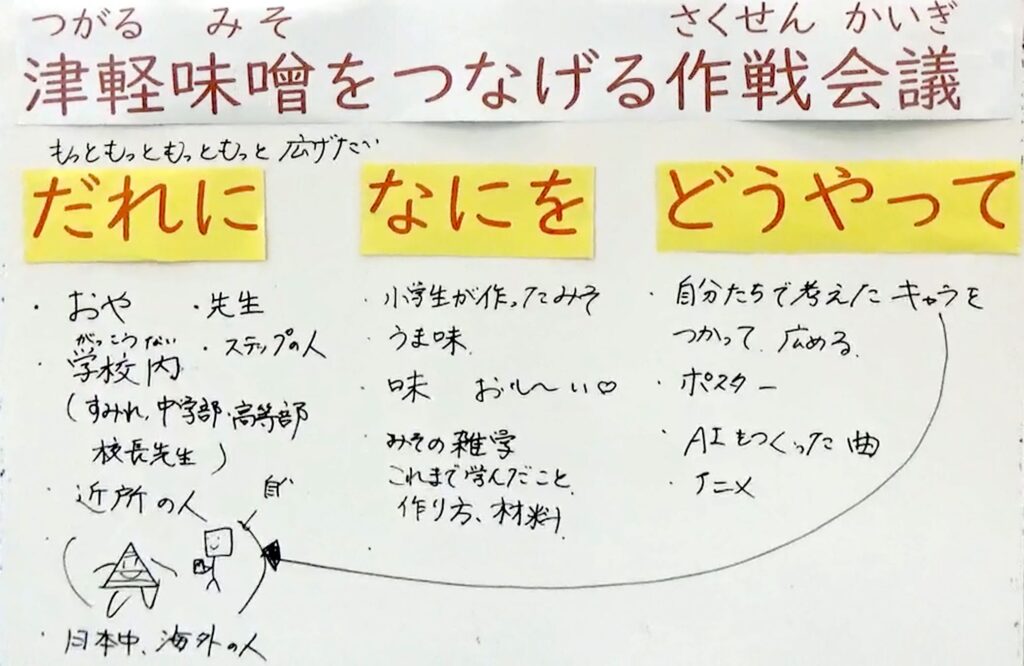 つがる みそ さくせん かいぎ
津軽味噌をつなげる作戦会議
もっともっともっともっと 広げたい
だれに
・おや ・先生
がっこうない
・学校内 ・ステップの人
(すみれ、中学部・高等部
校長先生)
・近所の人
・日本中、海外の人
なにを
・小学生が作ったみそ
・うま味
・味 おいし〜い♡
・みその雑学
これまで学んだこと
作り方、材料
どうやって
・自分たちで考えたキャラを
つかって 広める
・ポスター
・AIをつくった曲
・アニメ